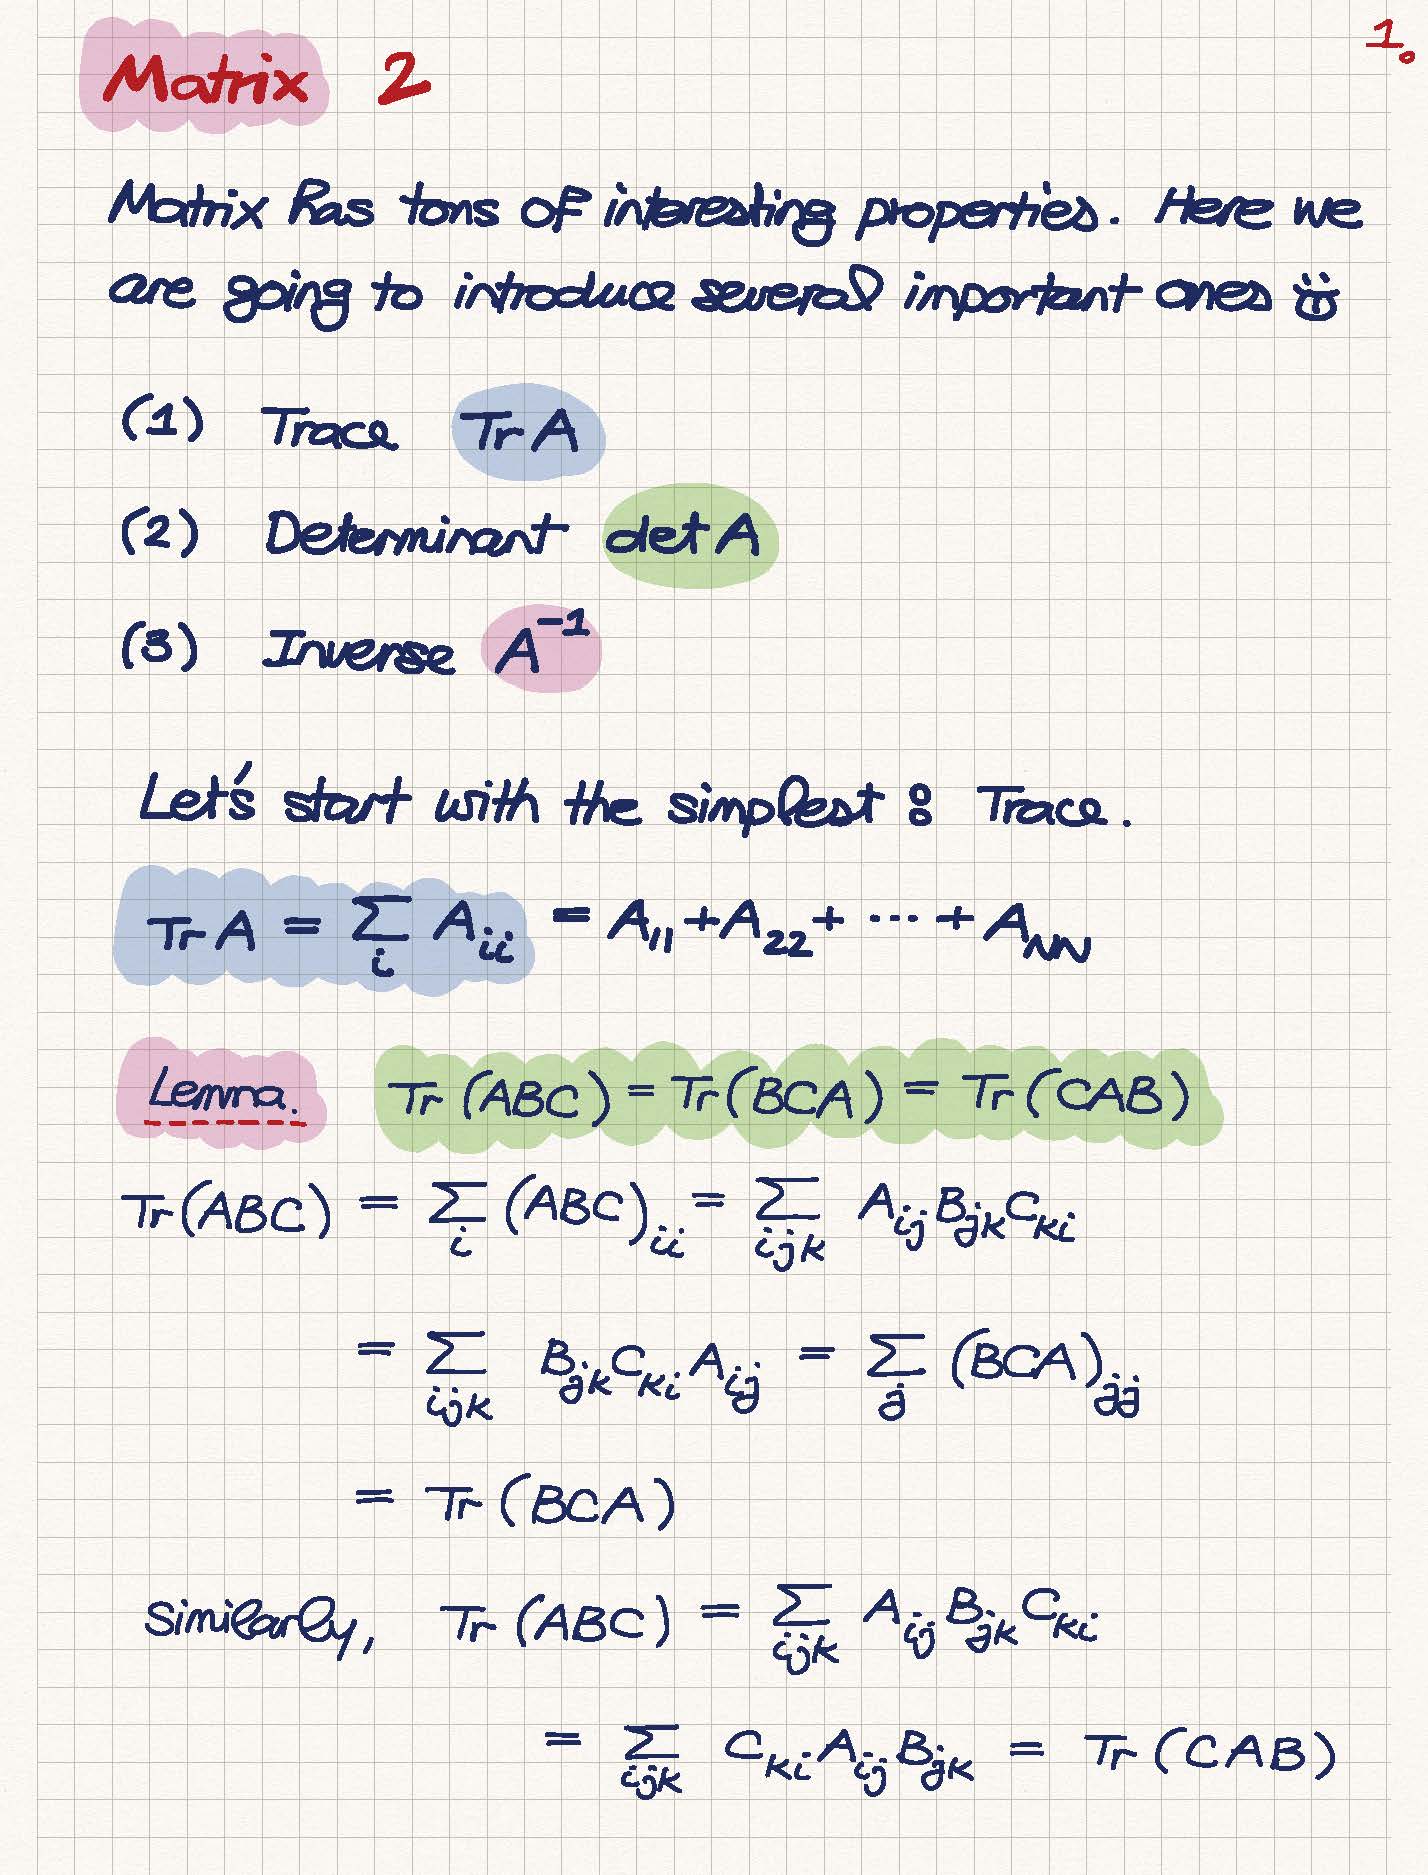 Matrix 2
1.
Matrix has tons of interesting properties. Here we
are going to introduce several important ones
(1) Trace Tr A
(2) Determinant det A
(3) Inverse A⁻¹
Let's start with the simplest : Trace.
Tr A = ∑_i A_ii = A_11 + A_22 + ⋯ + A_NN
Lemma. Tr (ABC) = Tr (BCA) = Tr (CAB)
Tr (ABC) = ∑_i (ABC)_ii = ∑_ijk A_ij B_jk C_ki
= ∑_ijk B_jk C_ki A_ij = ∑_j (BCA)_jj
= Tr (BCA)
Similarly, Tr (ABC) = ∑_ijk A_ij B_jk C_ki
= ∑_ijk C_ki A_ij B_jk = Tr (CAB)